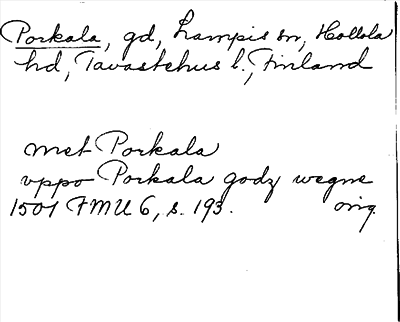 Porkala, gd, Lampis sn, Hollola
hd, Tavastehus l., Finland
met Porkala
vppo Porkala godz wegne
1501 FMU 6, s. 193. orig.